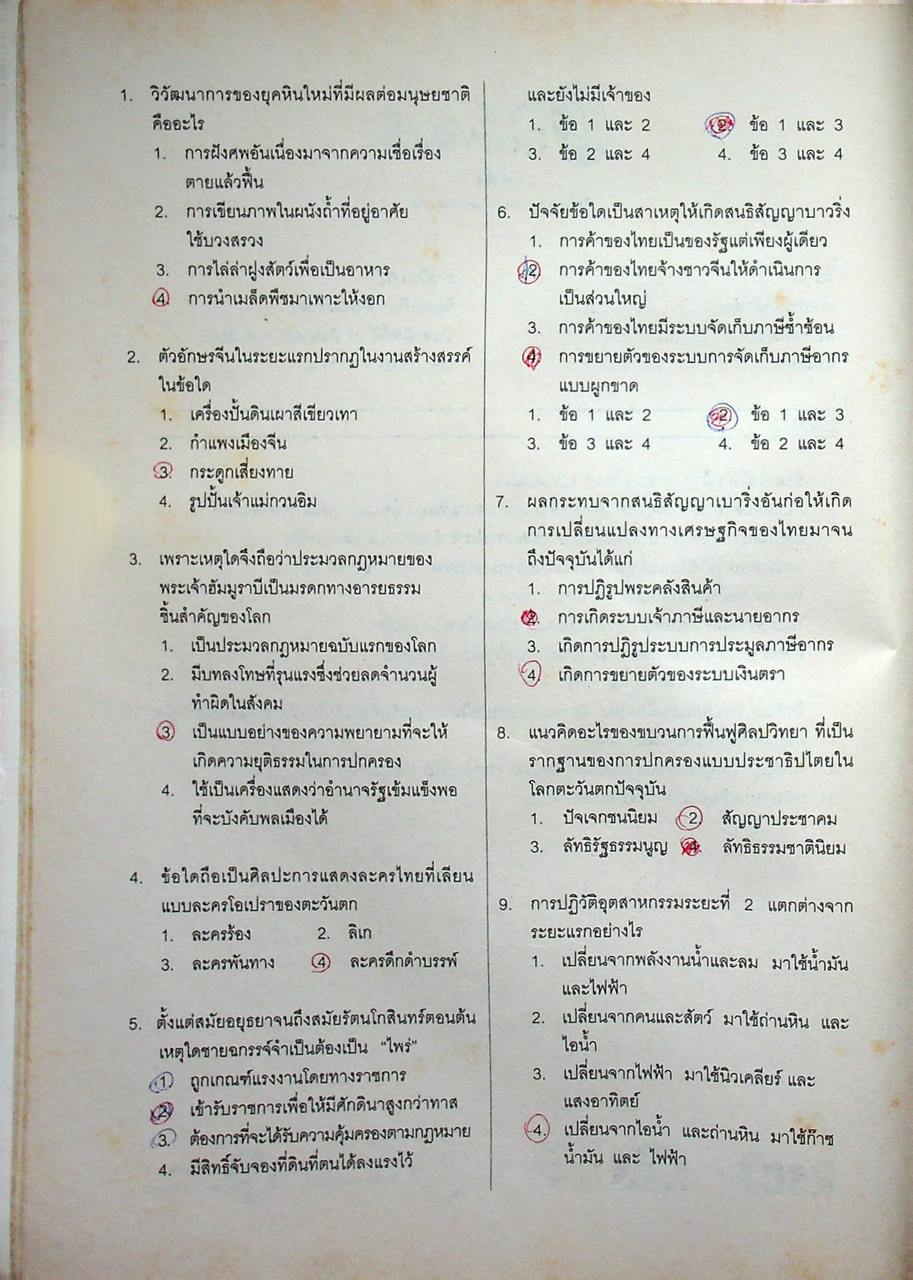 1. วิวัฒนาการของยุคหินใหม่ที่มีผลต่อมนุษยชาติ
คืออะไร
1. การฝังศพอันเนื่องมาจากความเชื่อเรื่อง
ตายแล้วฟื้น
2. การเขียนภาพในผนังถ้ำที่อยู่อาศัย
ใช้บวงสรวง
3. การไล่ล่าฝูงสัตว์เพื่อเป็นอาหาร
4. การนำเมล็ดพืชมาเพาะให้งอก
2. ตัวอักษรจีนในระยะแรกปรากฏในงานสร้างสรรค์
ในข้อใด
1. เครื่องปั้นดินเผาสีเขียวเทา
2. กำแพงเมืองจีน
3. กระดูกเสี่ยงทาย
4. รูปปั้นเจ้าแม่กวนอิม
3. เพราะเหตุใดจึงถือว่าประมวลกฎหมายของ
พระเจ้าฮัมมูราบีเป็นมรดกทางอารยธรรม
ชิ้นสำคัญของโลก
1. เป็นประมวลกฎหมายฉบับแรกของโลก
2. มีบทลงโทษที่รุนแรงซึ่งช่วยลดจำนวนผู้
ทำผิดในสังคม
3. เป็นแบบอย่างของความพยายามที่จะให้
เกิดความยุติธรรมในการปกครอง
4. ใช้เป็นเครื่องแสดงว่าอำนาจรัฐเข้มแข็งพอ
ที่จะบังคับพลเมืองได้
4. ข้อใดถือเป็นศิลปะการแสดงละครไทยที่เลียน
แบบละครโอเปราของตะวันตก
1. ละครร้อง 2. ลิเก
3. ละครพันทาง 4. ละครดึกดำบรรพ์
5. ตั้งแต่สมัยอยุธยาจนถึงสมัยรัตนโกสินทร์ตอนต้น
เหตุใดชายฉกรรจ์จำเป็นต้องเป็น "ไพร่"
1. ถูกเกณฑ์แรงงานโดยทางราชการ
2. เข้ารับราชการเพื่อให้มีศักดินาสูงกว่าทาส
3. ต้องการที่จะได้รับความคุ้มครองตามกฎหมาย
4. มีสิทธิ์จับจองที่ดินที่ตนได้ลงแรงไว้
และยังไม่มีเจ้าของ
1. ข้อ 1 และ 2 2. ข้อ 1 และ 3
3. ข้อ 2 และ 4 4. ข้อ 3 และ 4
6. ปัจจัยข้อใดเป็นสาเหตุให้เกิดสนธิสัญญาบาวริ่ง
1. การค้าของไทยเป็นของรัฐแต่เพียงผู้เดียว
2. การค้าของไทยจ้างชาวจีนให้ดำเนินการ
เป็นส่วนใหญ่
3. การค้าของไทยมีระบบจัดเก็บภาษีซ้ำซ้อน
4. การขยายตัวของระบบการจัดเก็บภาษีอากร
แบบผูกขาด
1. ข้อ 1 และ 2 2. ข้อ 1 และ 3
3. ข้อ 3 และ 4 4. ข้อ 2 และ 4
7. ผลกระทบจากสนธิสัญญาเบาริ่งอันก่อให้เกิด
การเปลี่ยนแปลงทางเศรษฐกิจของไทยมาจน
ถึงปัจจุบันได้แก่
1. การปฏิรูปพระคลังสินค้า
2. การเกิดระบบเจ้าภาษีและนายอากร
3. เกิดการปฏิรูประบบการประมูลภาษีอากร
4. เกิดการขยายตัวของระบบเงินตรา
8. แนวคิดอะไรของขบวนการฟื้นฟูศิลปวิทยา ที่เป็น
รากฐานของการปกครองแบบประชาธิปไตยใน
โลกตะวันตกปัจจุบัน
1. ปัจเจกชนนิยม 2. สัญญาประชาคม
3. ลัทธิรัฐธรรมนูญ 4. ลัทธิธรรมชาตินิยม
9. การปฏิวัติอุตสาหกรรมระยะที่ 2 แตกต่างจาก
ระยะแรกอย่างไร
1. เปลี่ยนจากพลังงานน้ำและลม มาใช้น้ำมัน
และไฟฟ้า
2. เปลี่ยนจากคนและสัตว์ มาใช้ถ่านหิน และ
ไอน้ำ
3. เปลี่ยนจากไฟฟ้า มาใช้นิวเคลียร์ และ
แสงอาทิตย์
4. เปลี่ยนจากไอน้ำ และถ่านหิน มาใช้ก๊าซ
น้ำมัน และ ไฟฟ้า